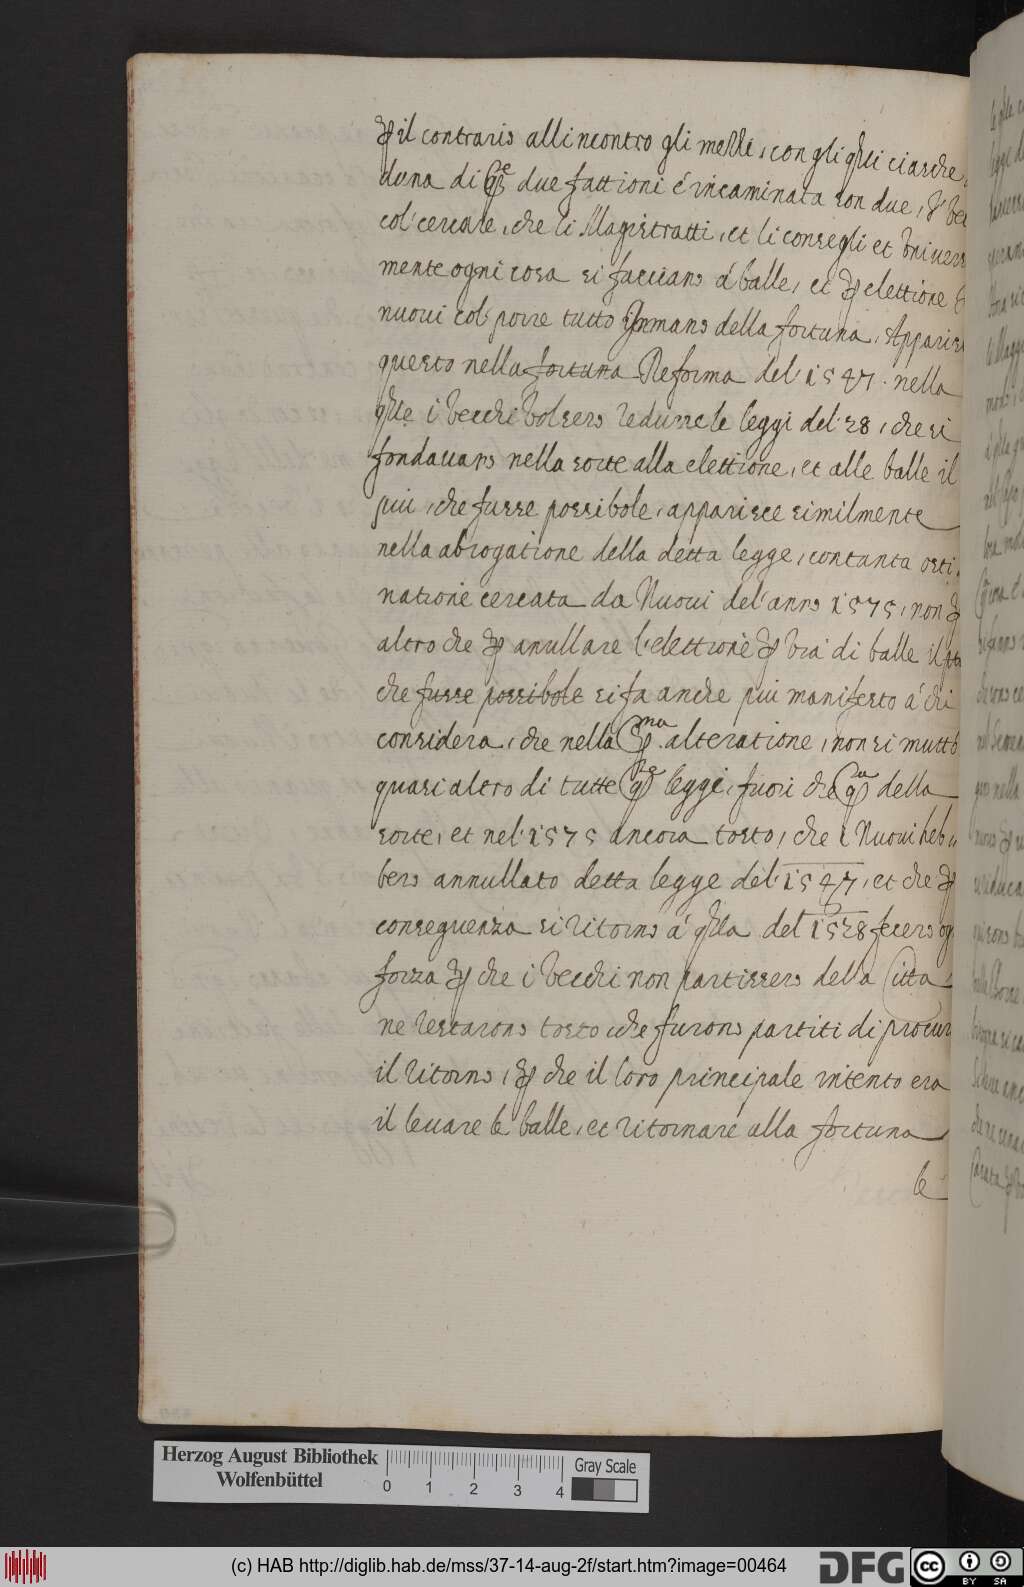 ꝑ il contrario all incontro gli mezzi, con gli q̃li ciasche
duna di q̃e due fattioni é incaminata son due, i Vec
col' cercare, che li Magistratti, et li consegli et Univers
mente ogni cosa si facciano à balle, et ꝑ elettione
nuoui col' porre tutto In mano della fortuna, Apparisc
questo nella fortuna Reforma del' 1547. nella
q̃le i Vecchi Volsero redurre le leggi del' 28, che si
fondauano nella sorte alla elettione, et alle balle il
piú, che fusse possibole, apparisce similmente
nella abrogatione della detta legge, con tanta osti
natione cercata da Nuoui del' anno 1575, non ꝑ
altro che ꝑ anullare l'elettione ꝑ via di balle il
che fusse possibole si fa anche piú manifesto á chi
considera, che nella pma. alteratione, non si muttó
quasi altro di tutte q̃e leggi, fuori che q̃a della
sorte, et nel' 1575 ancora tosto, che i Nuoui heb
bero annullato detta legge del' 1547, et che ꝑ
conseguenza si ritorno á q̃lla del 1528 fecero og
forza ꝑ che i Vecchi non partissero della Citta
ne restarono tosto che furono partiti di procur
il ritorno, ꝑ che il loro principale intento era
il leuare le balle, et ritornare alla fortuna
le
Herzog August Bibliothek
Wolfenbüttel
0 1 2 3 4
Gray Scale
(c) HAB http://diglib.hab.de/mss/37-14-aug-2f/start.htm?image=00464
DFG
cc BY SA